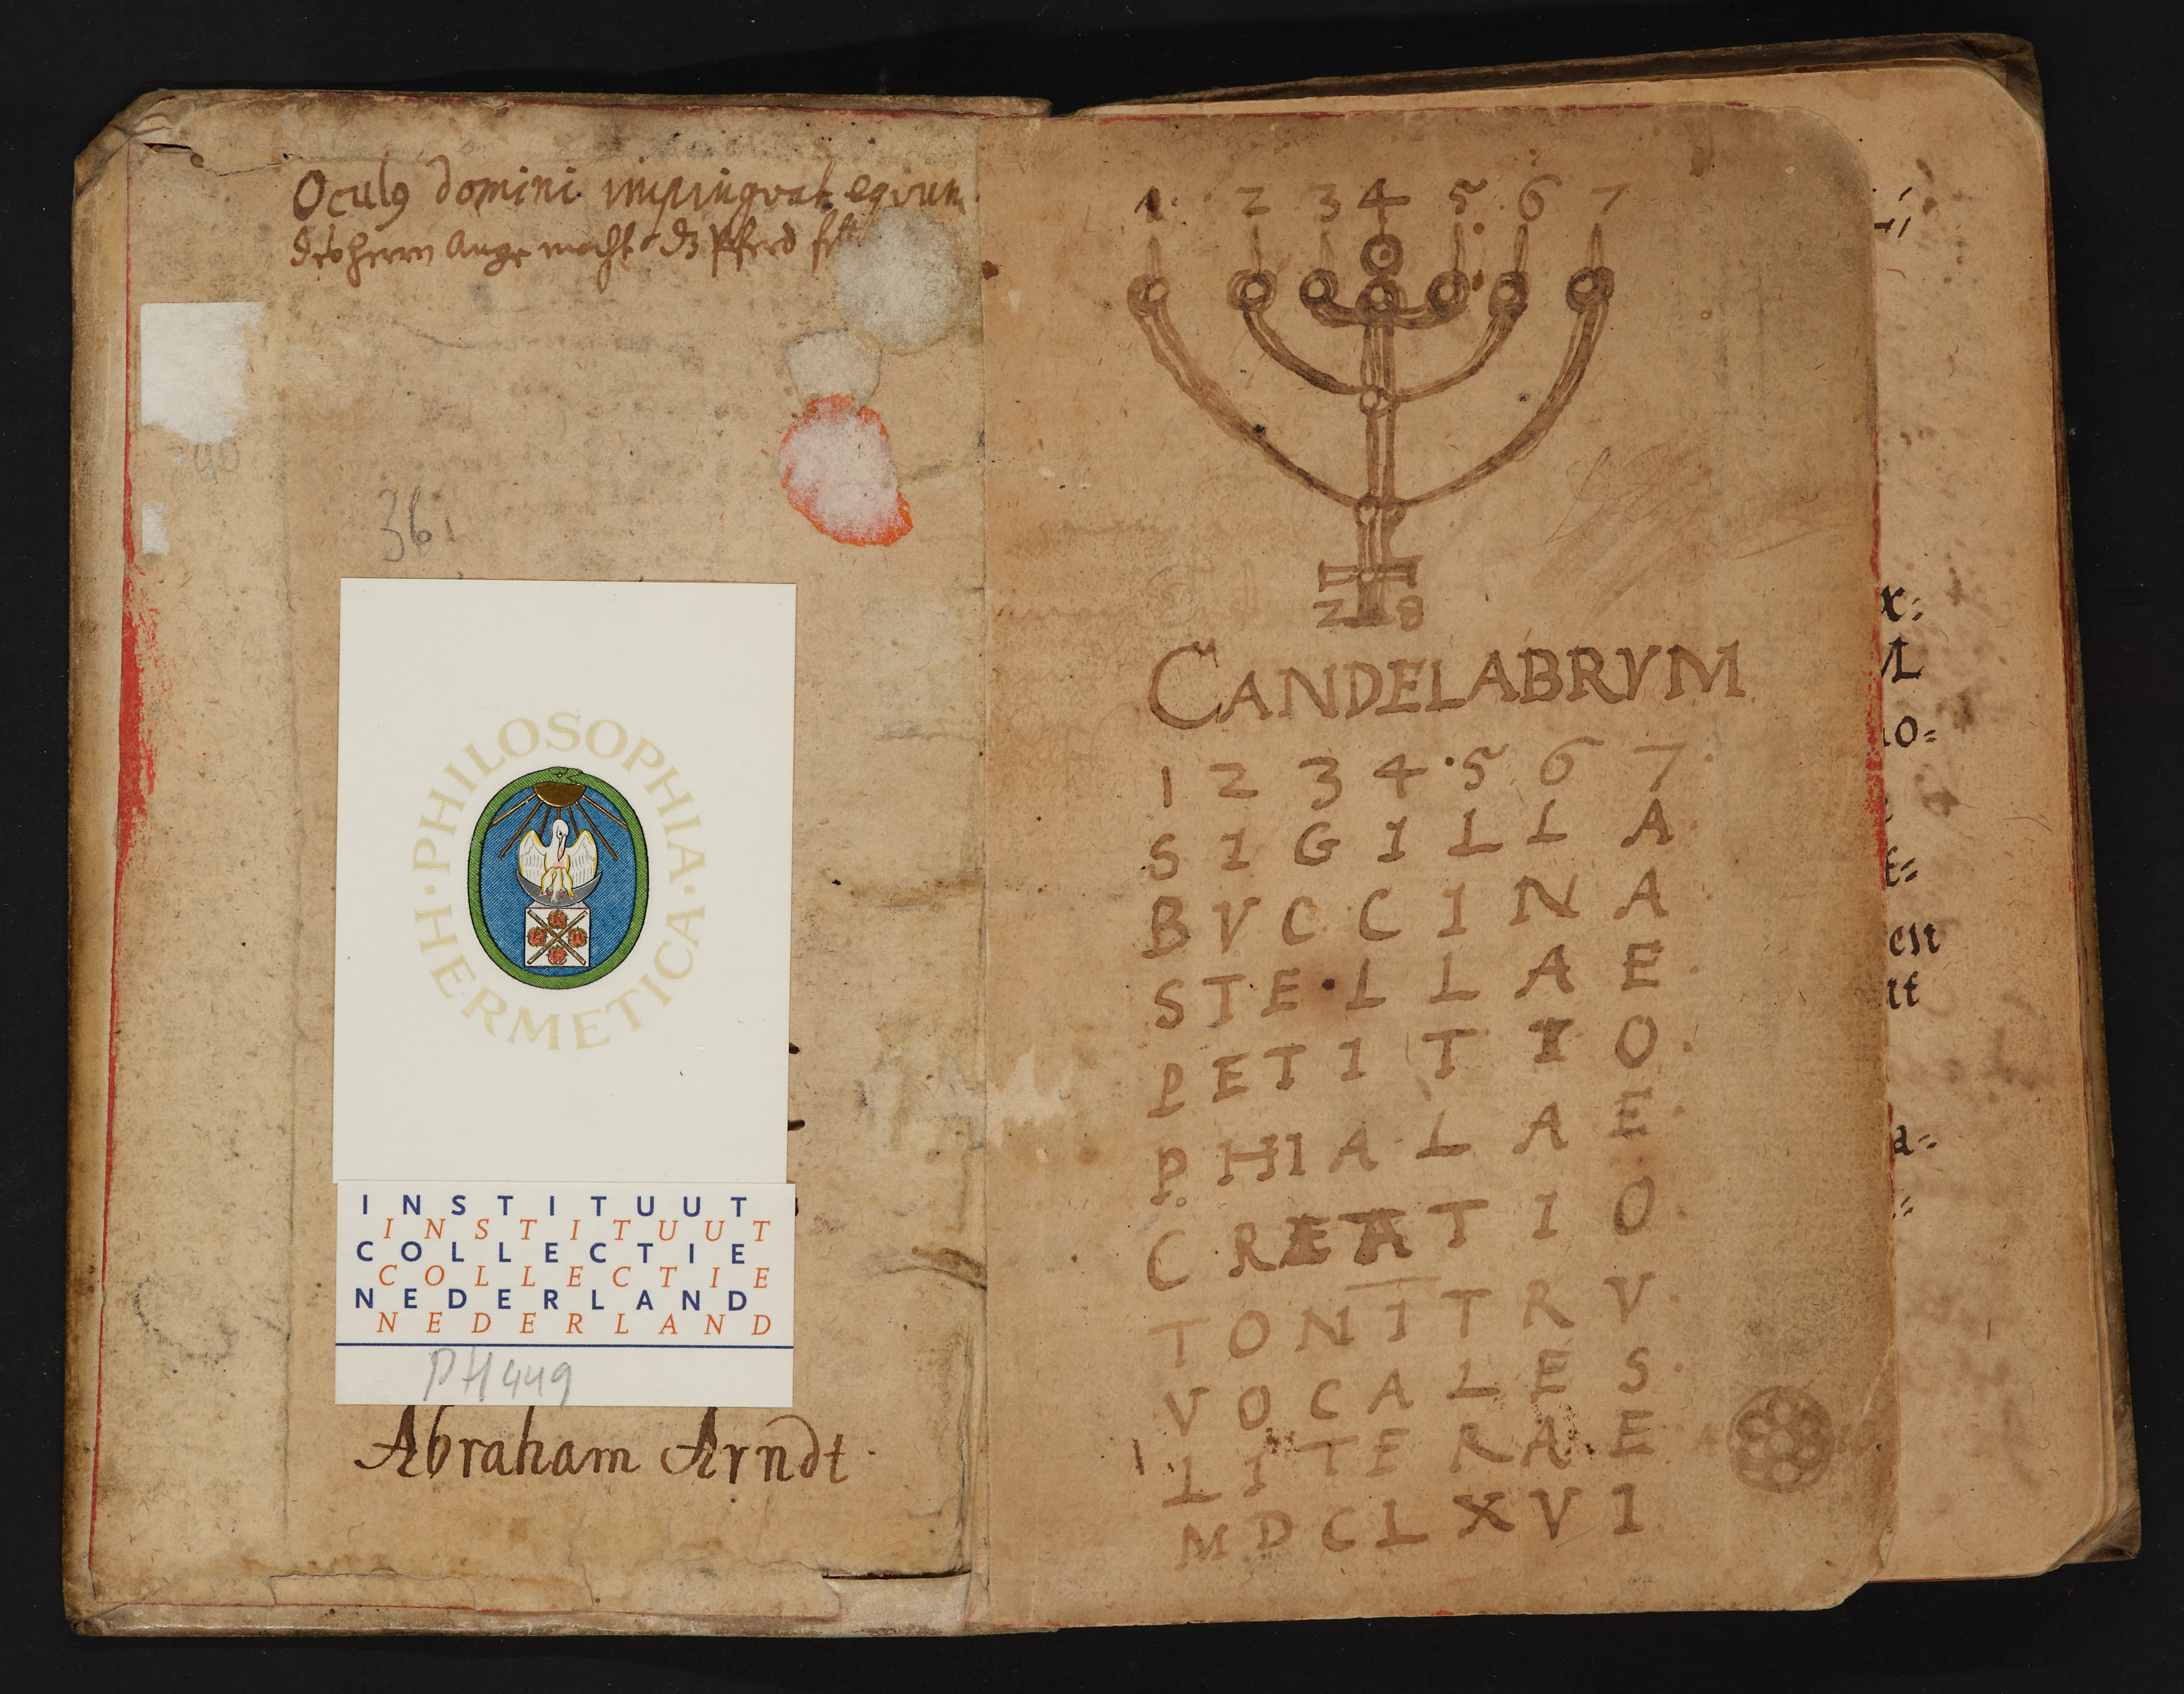 Oculꝯ domini impingvat eqvum
des herrn Auge macht dz Pferd
361
PHILOSOPHIA · HERMETICA · H ·
INSTITUUT
INSTITUUT
COLLECTIE
COLLECTIE
NEDERLAND
NEDERLAND
PH 449
Abraham Arndt.
1 2 3 4 5 6 7
2 8
CANDELABRVM
1 2 3 4 5 6 7
S I G I L L A
B V C C I N A
S T E L L A E
P E T I T I O
P H I A L A E
C R E A T I O
T O N I T R V
V O C A L E S
L I T E R A E
M D C L X V I
x=
lo=
t=
en
a=